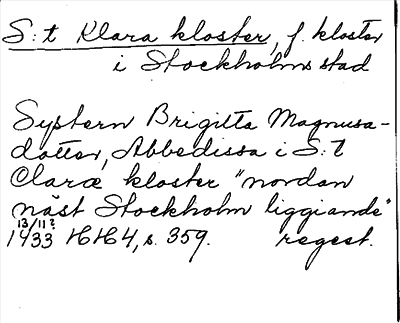 S:t Klara kloster, f. kloster
i Stockholms stad
Systern Brigitta Magnusa-
dotter, Abbedissa i S:t
Claræ kloster "nordan
näst Stockholm liggiande"
13/11?
1433 HH4, s. 359. regest.